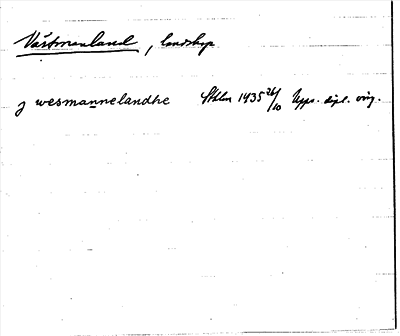 Västmanland, landskap
j wesmannelandhe Sthlm 1435 26/10 Upps. dipl. orig.